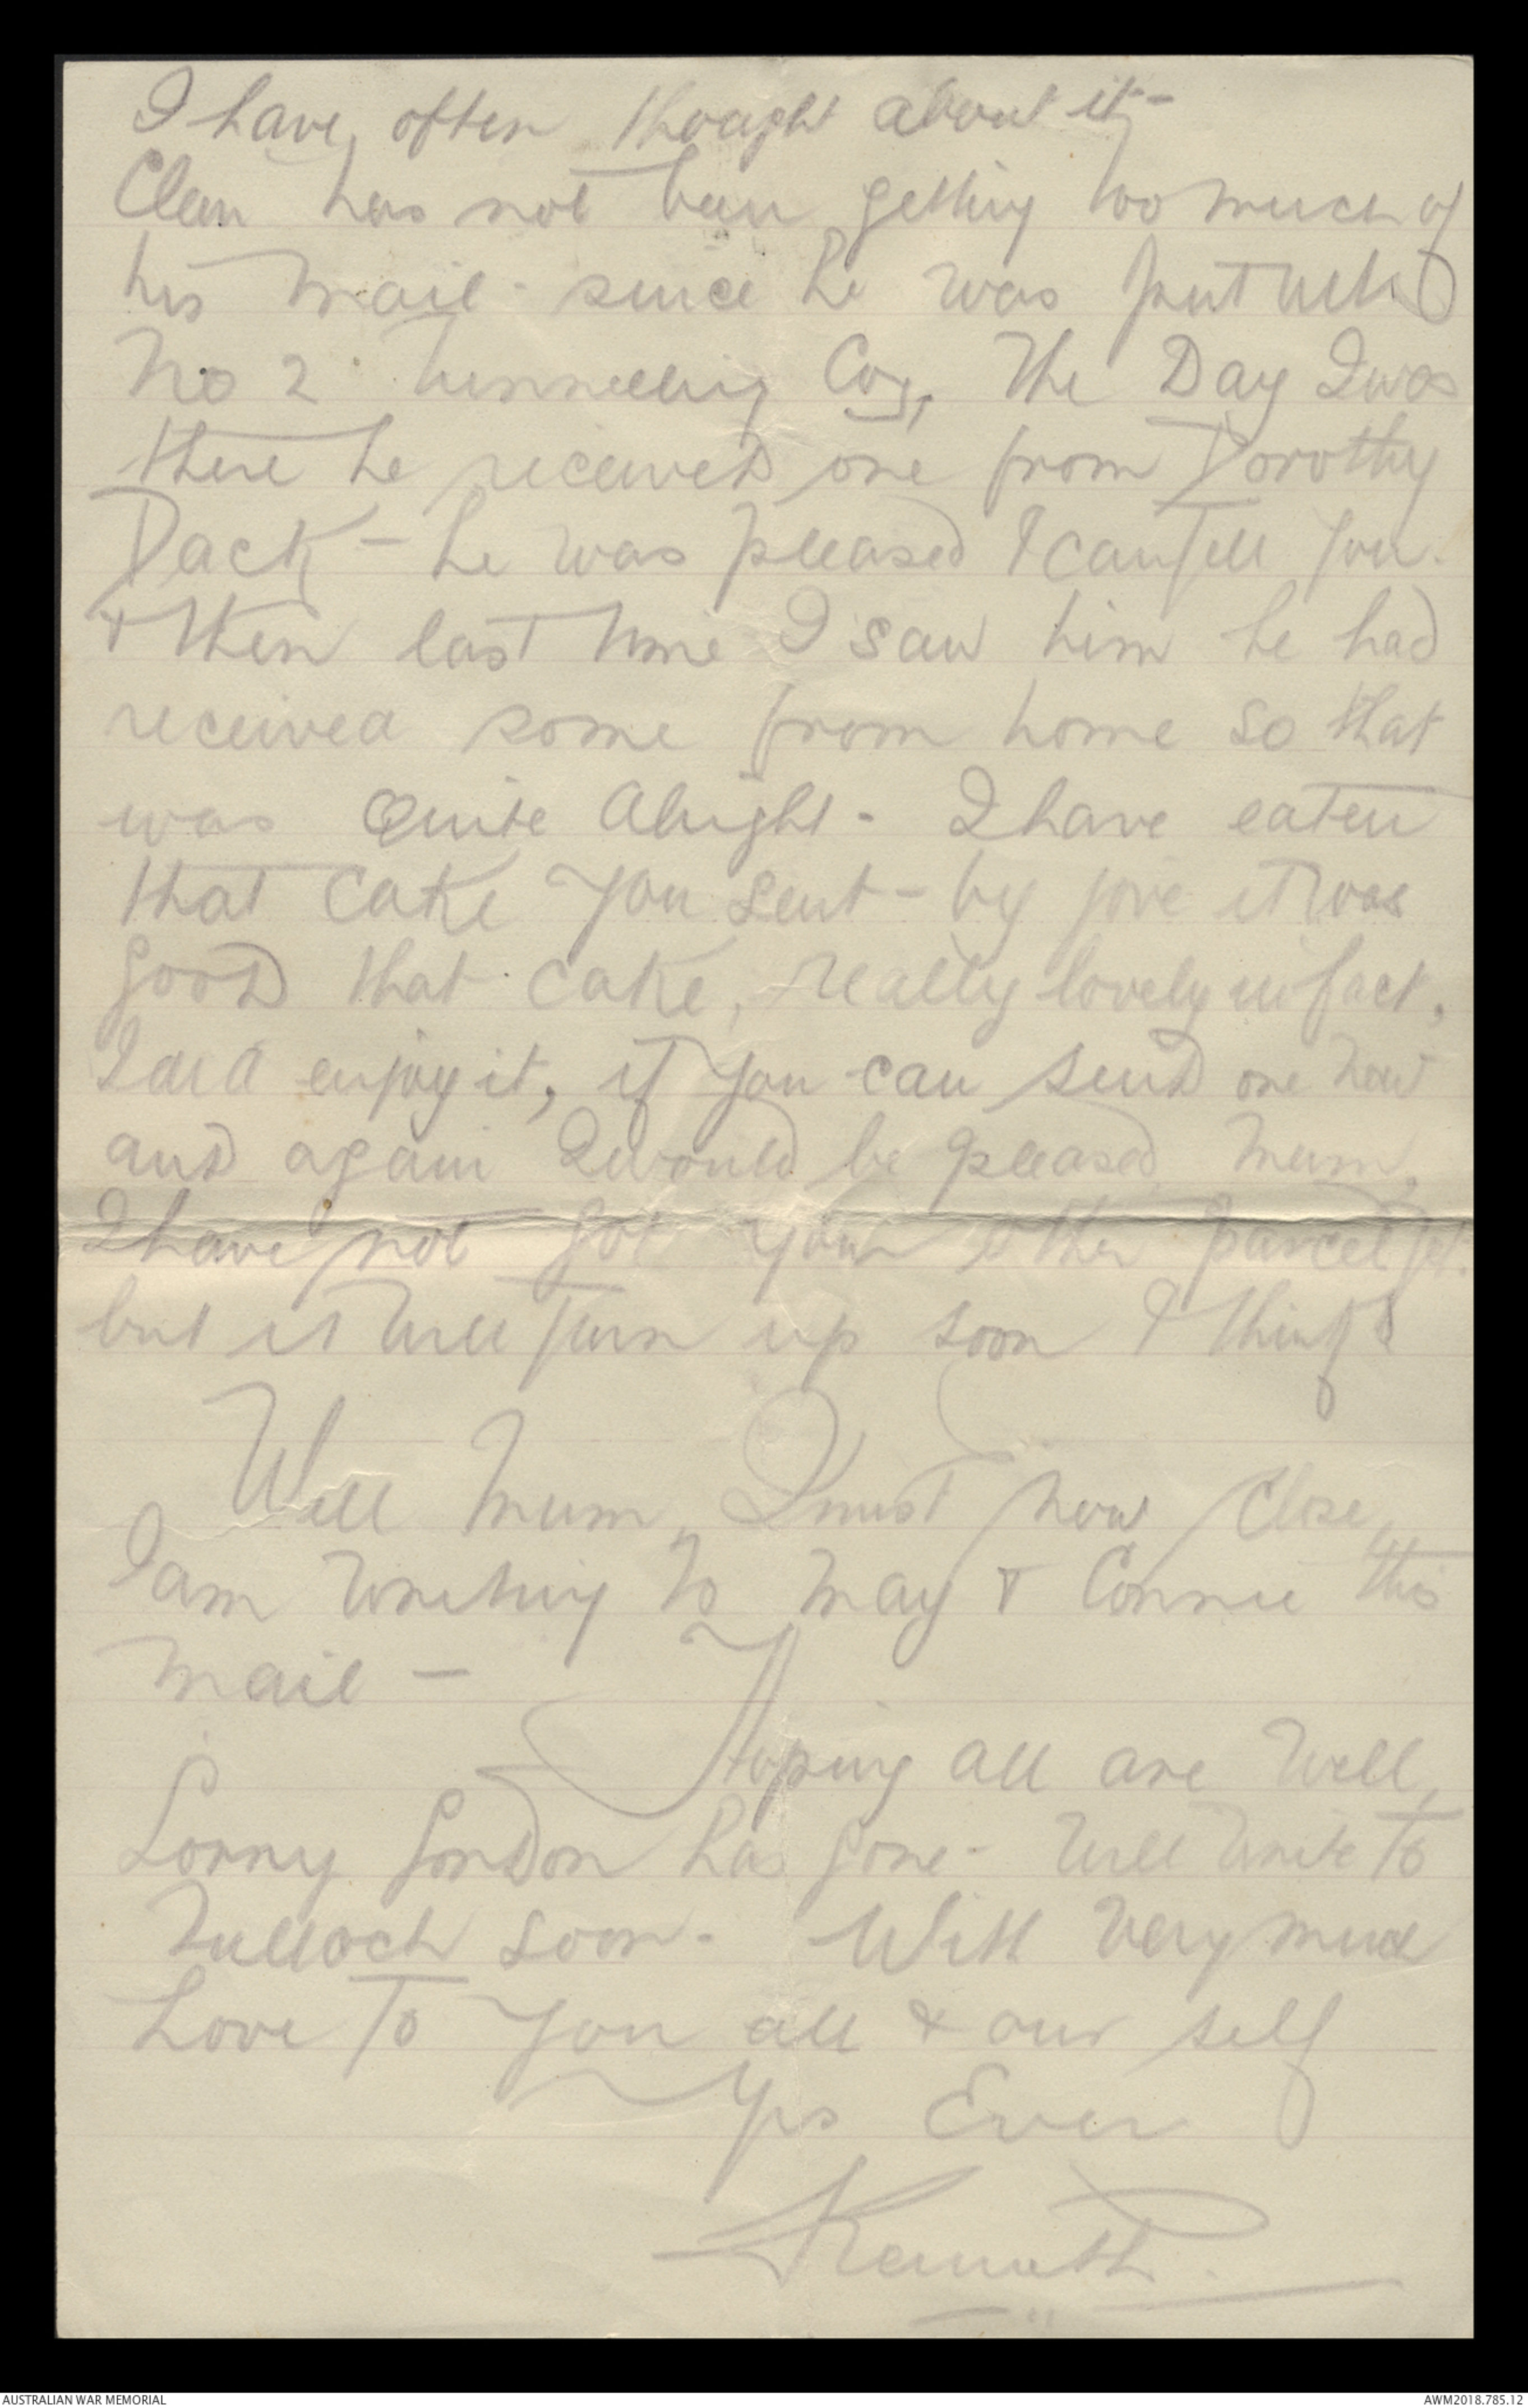 I have often thought about it -
Clem has not been getting too much of
his mail - since he was put with
No 2 Tunnelling Coy, The Day I was
there he received one from Dorothy
Dack - he was pleased I can tell you.
& then last time I saw him he had
received some from home so that
was Quite Alright - I have eaten
that Cake you sent - by jove it was
good that cake, really lovely in fact,
I did enjoy it, if you can send one now
and again I would be pleased Mum,
I have not got your other parcel yet.
but it will turn up soon I think
Well Mum, I must now close,
I am writing to May & Connie this
mail -
Hoping all are well,
Lorny Gordon has gone - Will write to
Tulloch soon. With very much
Love To you all & our self
Yrs Ever
Kenneth.
AUSTRALIAN WAR MEMORIAL
AWM2018.785.12